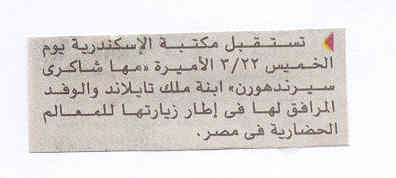 تستقبل مكتبة الإسكندرية يوم
الخميس ٣/٢٢ الأميرة «مها شاكرى
سيرندهورن» ابنة ملك تايلاند والوفد
المرافق لها فى إطار زيارتها للمعالم
الحضارية فى مصر.